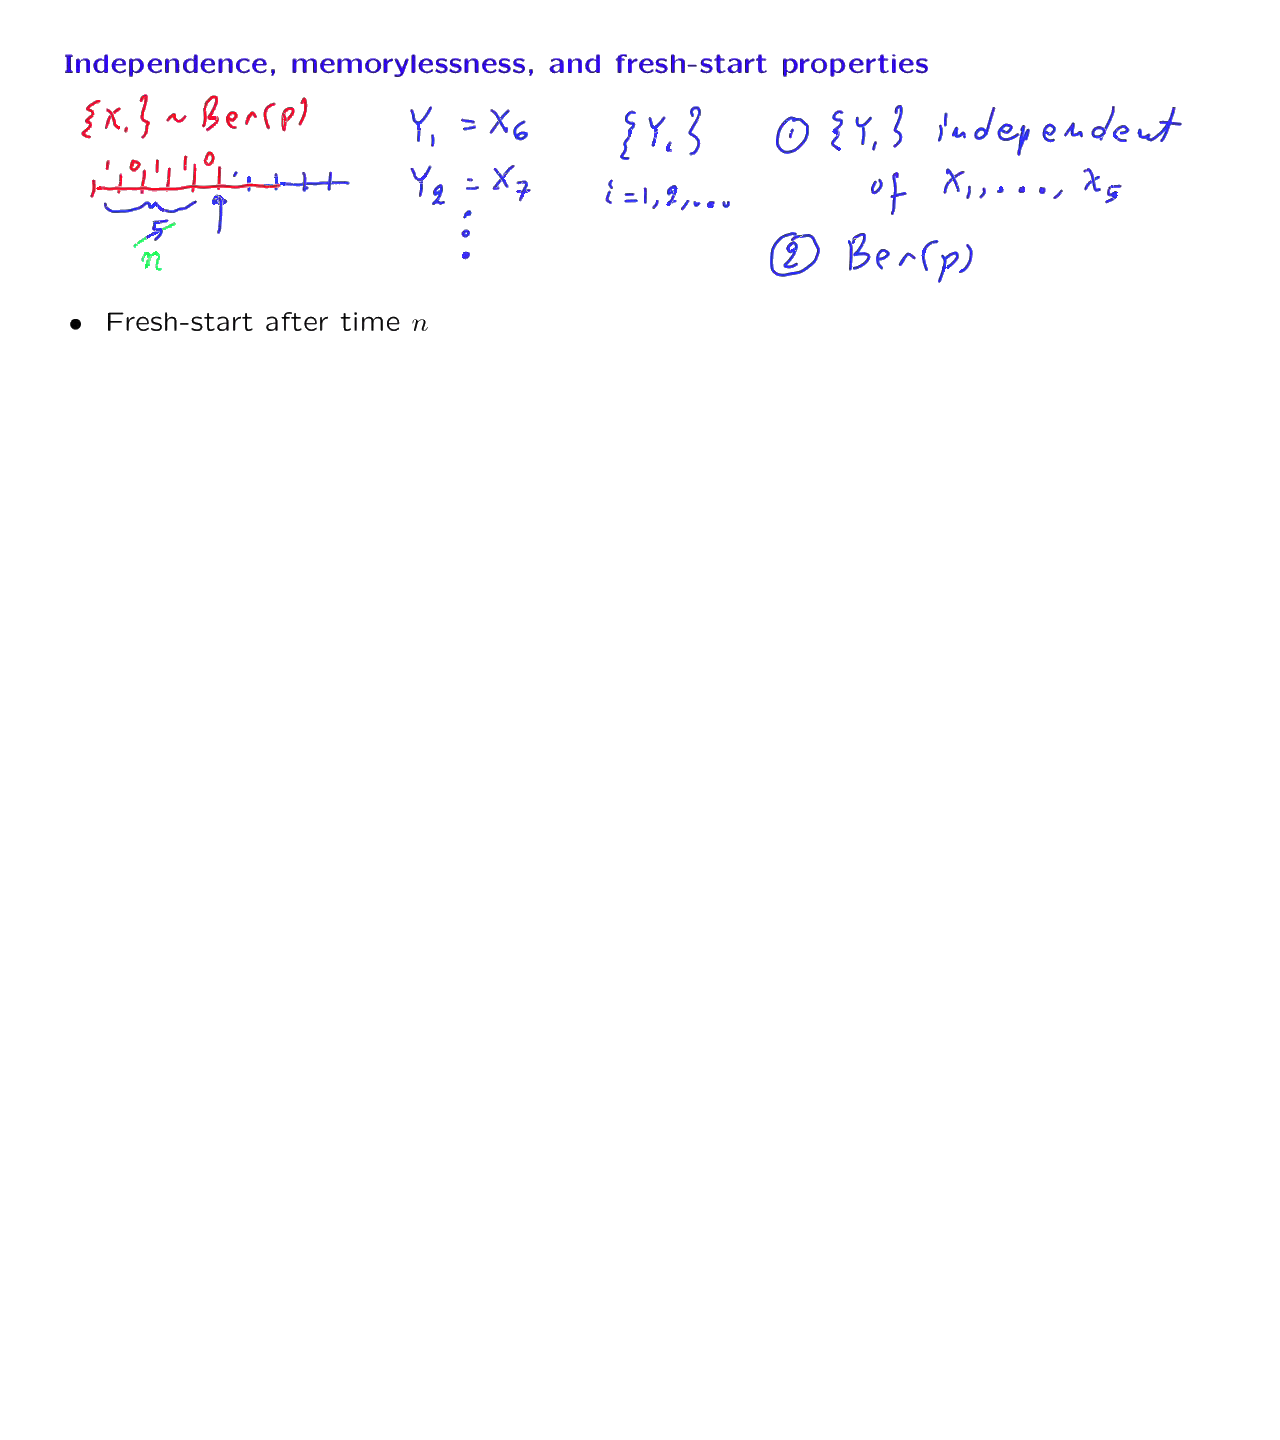 Independence, memorylessness, and fresh-start properties
{Xi} ~ Ber(p)
1 0 1 1 0
5
n
Y1 = X6
Y2 = X7
⋮
{Yi}
i = 1, 2, ...
① {Yi} independent
of X1, ..., X5
② Ber(p)
• Fresh-start after time n